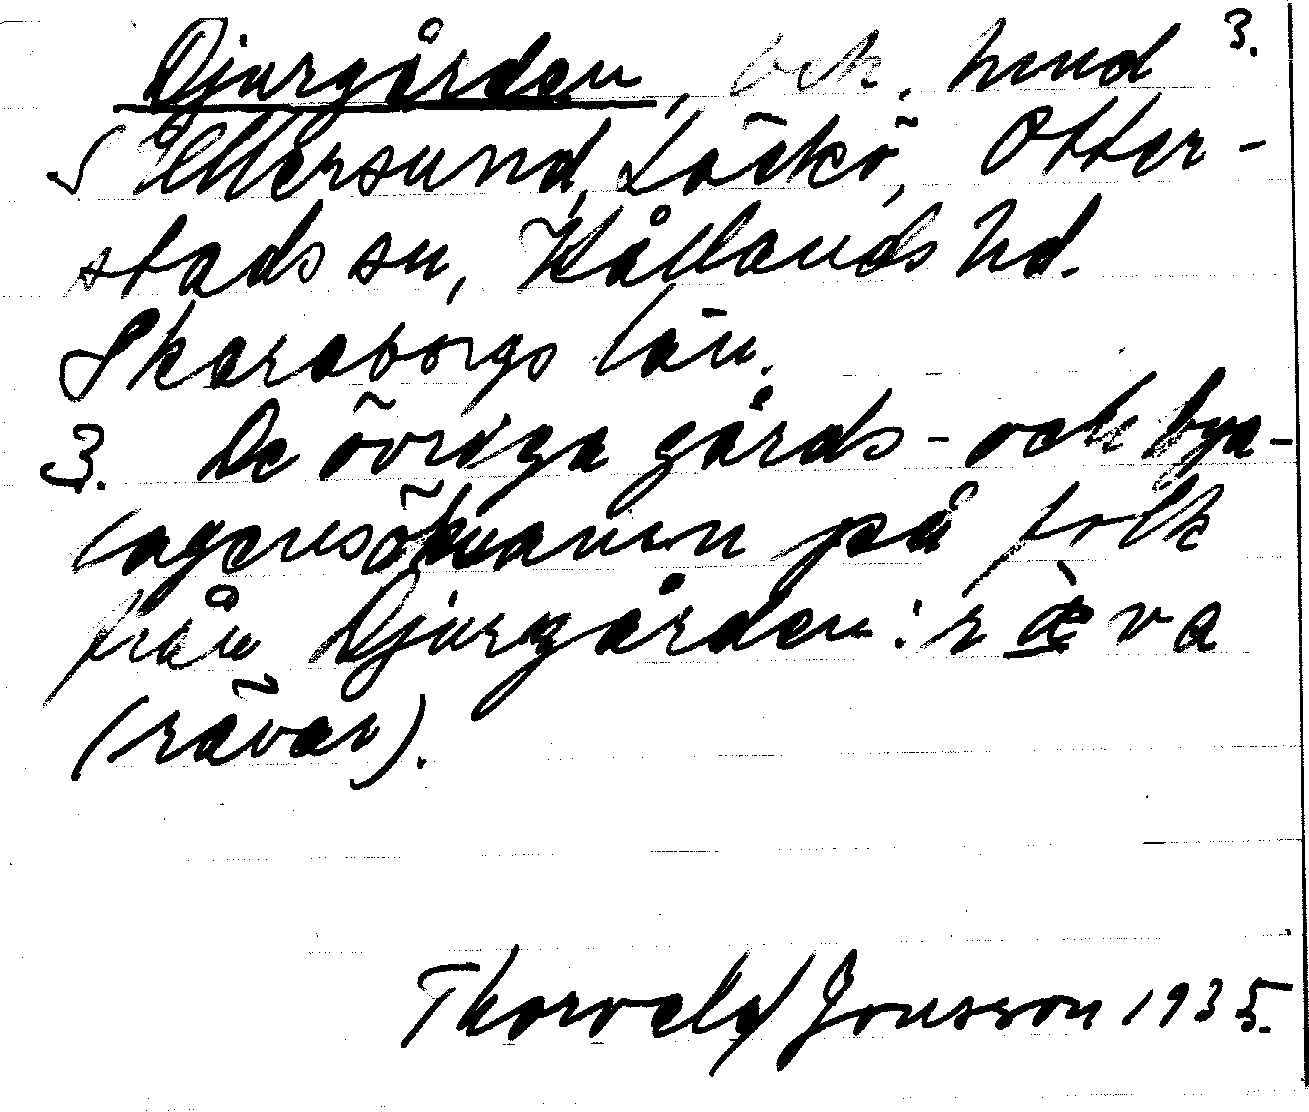 Djurgården, och. hmd 3.
S Ullersund, Läckö, Otter-
stads sn, Kållands hd.
Skaraborgs län.
3. De övriga gårds- och bya-
lagensöknamn på folk
från Djurgården: ræ̀va
(rävar).
Thorvald Jonsson 1935.